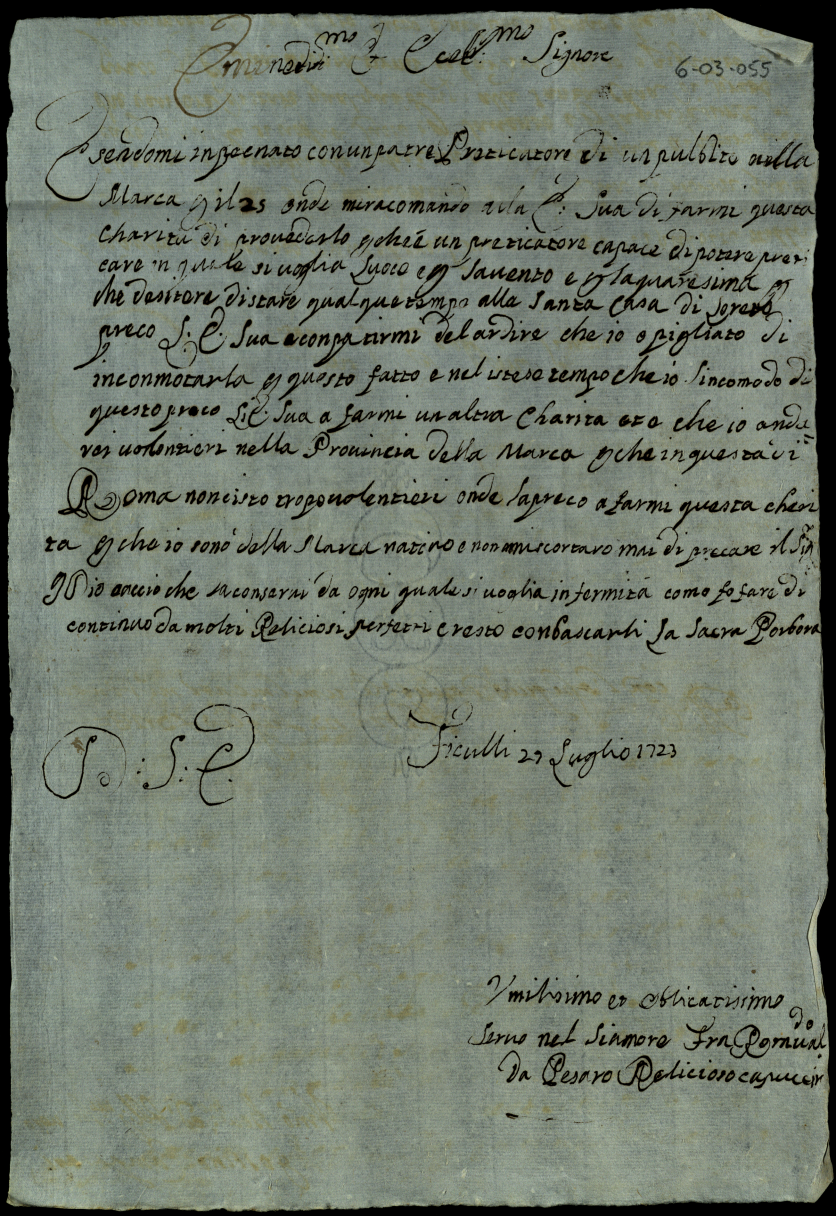 Eminentis.mo et Ecel.mo Signore
6-03-055
Esendomi inpecnato con un patre Preticatore di un pulbito nella
Marca p il 25 onde miracomando alla E: Sua di farmi questa
Charità di provederlo p cheè un preticatore capace di potere preti
care in quale si voglia Luoco e p lavento e p la quaresima p
che desitere di stare qualque tempo alla Santa Casa di Loreto
preco L: E: Sua a conpatirmi del ardire che io o pigliato di
inconmotarla p questo fatto e nel isteso tempo che io L'incomodo di
questo preco L: E: Sua a farmi un altra Charità et e che io anda
rei volontieri nella Provincia della Marca p che in questa di
Roma non cisto tropo volentieri onde la preco a farmi questa cheri
ta p che io sono della Marca nativo e non mi scortaro mai di precare il Sig
p Dio accioche la conservi da ogni quale si voglia infermità como fo fare di
continuo da molti Reliciosi perfetti e resto con bascarli La Sacra Porbora
D: S: E:
Ficulli 27 Luglio 1723
Vmilisimo et oblicatissimo
Servo nel Signore Fra Romualdo
da Pesaro Relicioso capuccin